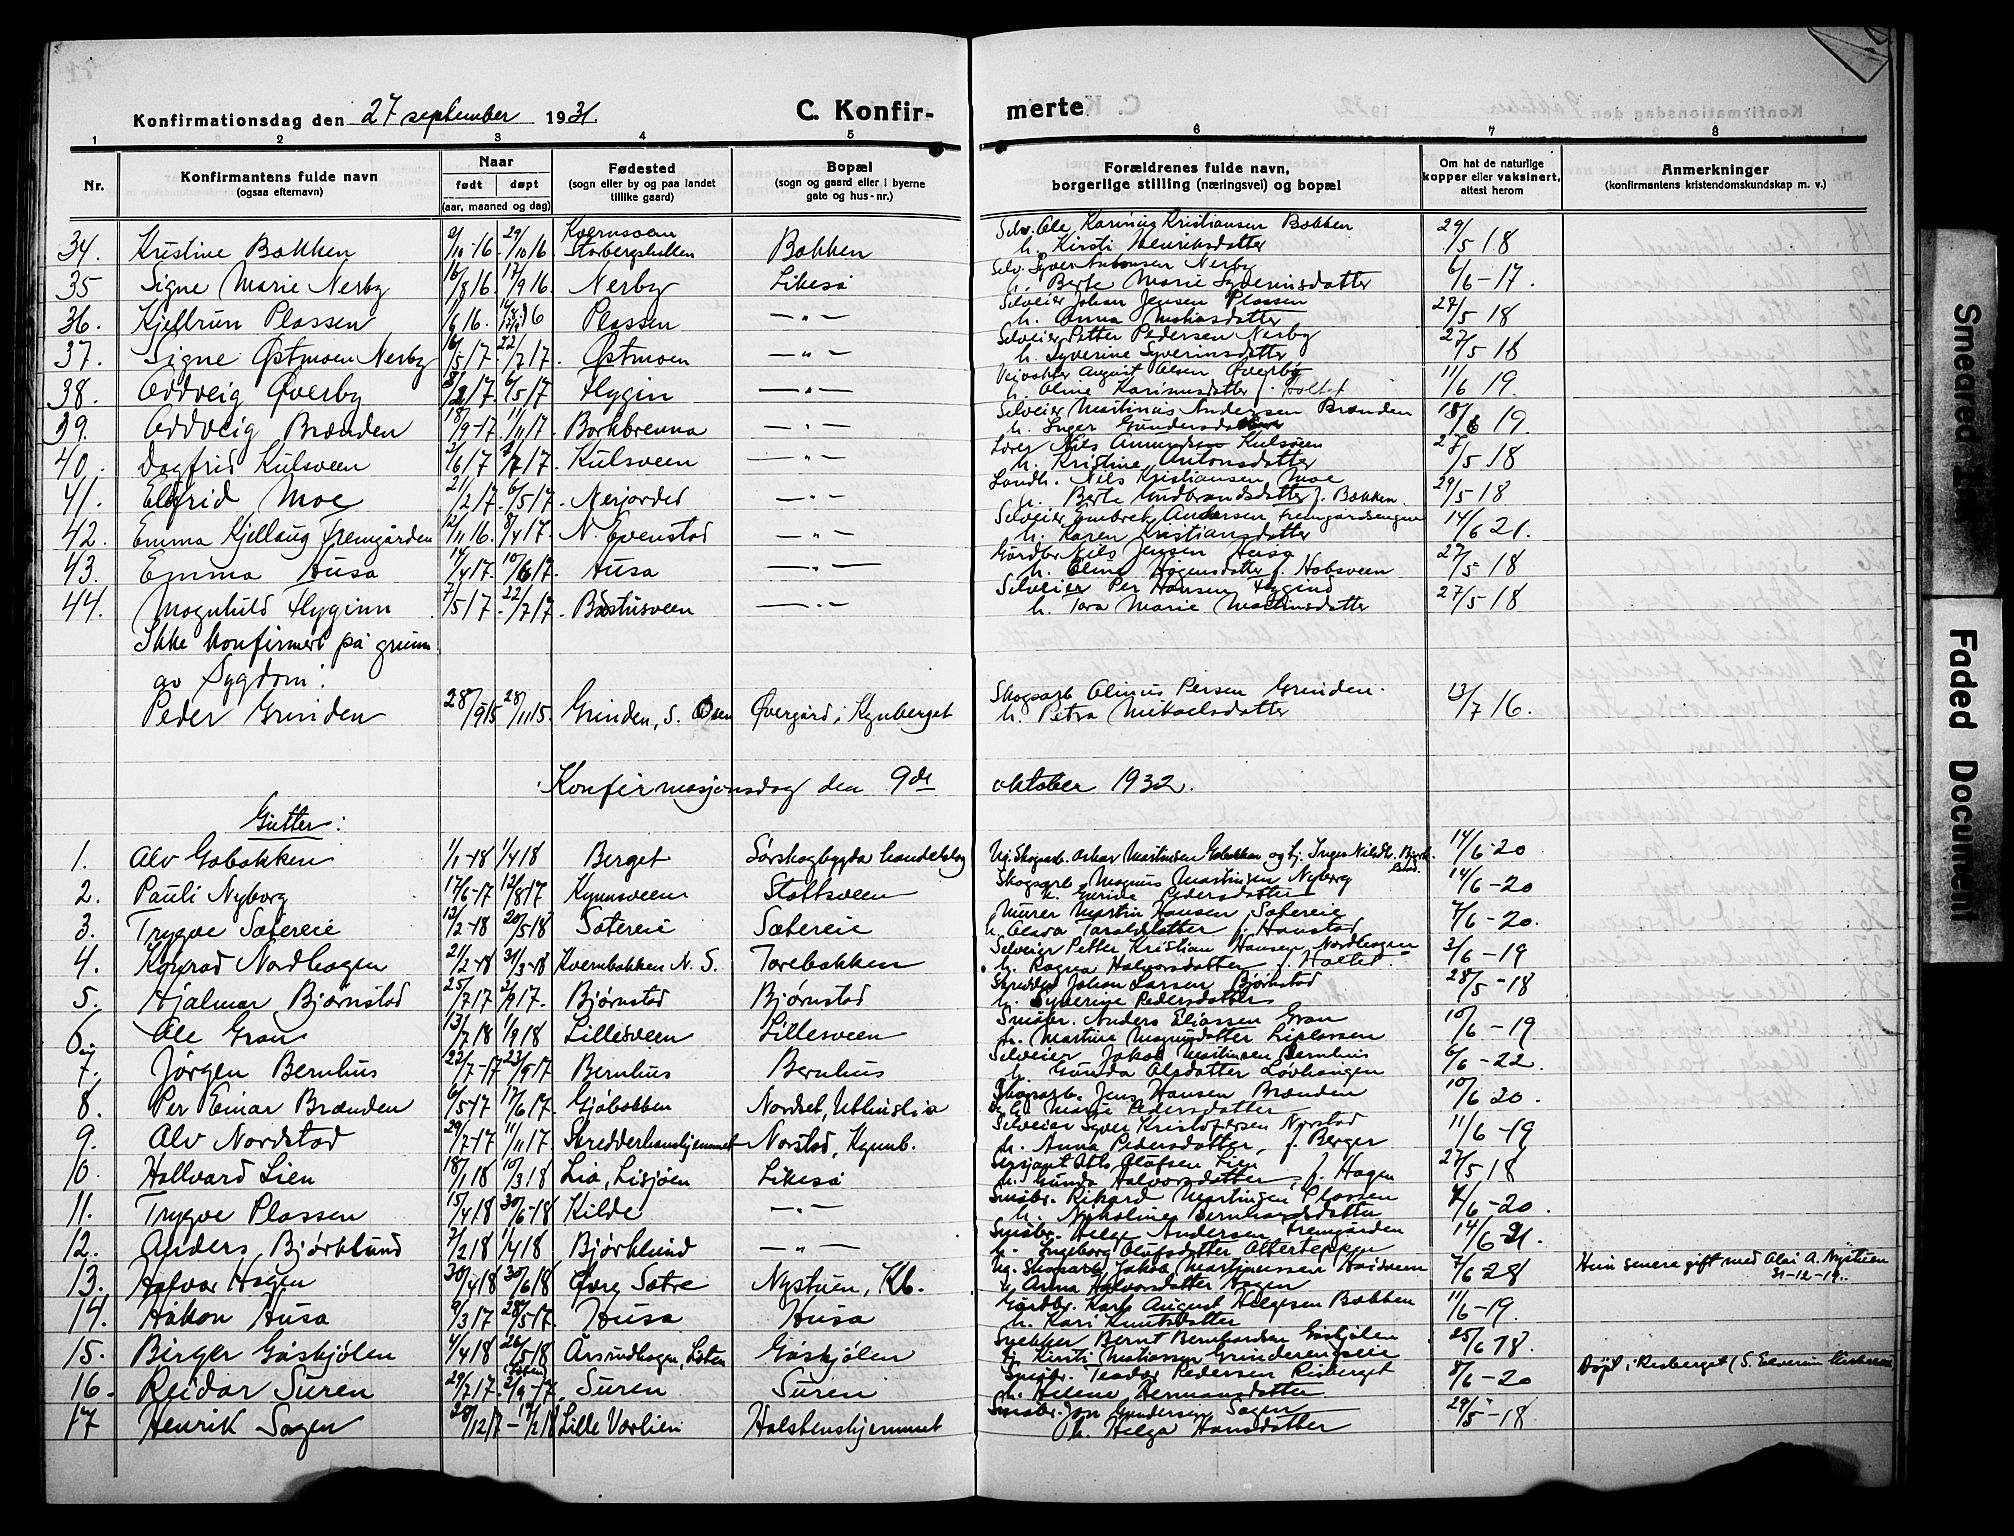 Konfirmationsdag den 27 september 1931. C. Konfir- merte
1 2 3 4 5 6 7 8
Nr. Konfirmantens fulde navn (ogsaa efternavn) Naar født døpt (aar, maaned og dag) Fødested (sogn eller by og paa landet tillike gaard) Bopæl (sogn og gaard eller i byerne gate og hus-nr.) Forældrenes fulde navn, borgerlige stilling (næringsvei) og bopæl Om hat de naturlige kopper eller vaksinert, attest herom Anmerkninger (konfirmantens kristendomskundskap m. v.)
34. Kristine Bakken 2/10-16 29/10 16 Bakken Selv. Ole Karinius Kristiansen Bakken h. Kirsti Henriksdatter 29/5 18
35 Signe Marie Nerby 16/8 16. 17/9 16 Nerby Likeså Selv. Syver Antonsen Nerby h. Berte Marie Syverinsdatter 6/6-17.
36. Kjellrun Plassen Plassen — " — Selveier Johan Jensen Plassen h. Anna Mathiasdatter 27/5 18
37. Signe Østmoen Nerby 16/5 17. 22/7 17. Østmoen — " — Selveier Petter Pedersen Nerby h. Syverine Syverinsdatter 27/5 18
38. Oddveig Øverby 6/5 17 Flygin — " — Veivokter August Olsen Øverby h. Oline Karinusdatter f. Holtet 11/6 19.
39. Oddveig Brænden 18/9-17. 11/11 17. Borkbrenna — " — Selveier Martinus Andersen Brænden h. Inger Gundersdatter 18/6 19.
40. Dagfrid Kulsveen Kulsveen — " — Nils Amundsen Kulsveen h. Kristine Antonsdatter 27/5 18
41. Elfrid Moe 21/2 17. 6/5 17. Nerjordet — " — Landh. Nils Kristiansen Moe h. Berte Gudbrandsdatter f. Bakken. 29/5-18
42. Emma Kjellaug Fremgården 12/11 16. 8/4 17. N. Evenstad — " — Selveier Embret Andersen Fremgårdsengen h. Karen Kristiansdatter 14/6 21.
43. Emma Husa 14/4 17. 10/6 17. Husa — " — Gårdbr. Nils Jensen Husa h. Eline Hågensdatter f. Habsveen 27/5-18
44. Magnhild Flyginn 7/5 17. 22/7 17. Bastusveen — " — Selveier Per Hansen Flygind h. Tora Marie Martinsdatter 27/5-18
Ikke konfirmert på grunn
av Sygdom:
Peder Grinden 28/9 15 28/11 15. Grinden, S. Osen Øvergård i Kynberget Skogsarb Olinus Persen Grinden. h. Petra Mikaelsdatter 13/7 16.
Konfirmasjonsdag den 9de oktober 1932.
Gutter:
1. Alv Gobakken 1/1-18 1/4 18 Berget Sørskogbygda handelslag Ug. Skogsarb. Oskar Martinsen Gobakken og pj. Inger Nilsdt. 14/6-20
2. Pauli Nyborg 17/6-17 12/8 17 Kynnsveen Stottsveen Skogsarb. Magnus Martinsen Nyborg h. Gurine Pedersdatter 14/6-20
3. Trygve Sætereie 12/2-18 20/5 18 Sætereie Sætereie Murer Martin Hansen Sætereie h. Olava Taraldsdatter f. Hanstad 7/6-20.
4. Konrad Nordhagen 21/2-18 31/3-18 Kvernbakken N. S. Torebakken Selveier Petter Kristian Hansen Nordhagen h. Ragna Halvorsdatter f. Holtet. 3/6-19
5. Hjalmar Bjørnstad 25/7 17 2/9 17. Bjørnstad Bjørnstad Skredder Johan Larsen Bjørnstad h. Syverine Pedersdatter 28/5-18
6. Ole Gran 13/7 18 1/9 18 Lillesveen Lillesveen Småbr. Anders Eliassen Gran h. Martine Magnusdatter Liplassen 10/6-19
7. Jørgen Bernhus 22/7-17 23/9-17 Bernhus Bernhus Selveier Jakob Martinsen Bernhus h. Gunda Olsdatter Lövhaugen 6/6-22.
8. Per Einar Brænden 6/5 17 17/6 17. Gjøbakken Nordset, Uthuslia Skogsarb. Jens Hansen Brænden h. Marie Pedersdatter 10/6 20.
9. Alv Nordstad 29/7-17 11/11 17. Skredderhanshjemmet Norstad, Kynnb. Selveier Syver Kristofersen Norstad h. Anna Pedersdatter, f. Berger 11/6-19
10. Hallvard Lien 18/1 18 10/3 18 Lia, Lisjøen Likeså Sersjant Olaf Olafsen Lien h. Gunda Halvorsdatter, f. Hagen 27/5 18
11. Trygve Plassen 15/4 18 30/6-18 Kilde — " — Småbr. Rikard Martinsen Plassen h. Nikoline Bernhardsdatter 4/6-20.
12. Anders Bjørklund 7/2 18 1/4 18 Bjørklund — " — Småbr. Helge Andersen Fremgården h. Ingeborg Olufsdatter Olterteppen 14/6-21
13. Halvor Hagen 30/4 18 30/6 18 Øvre Sætre Nystuen, Kb. Ug. Skogarb. Jakob Martinussen h. Anna Halvorsdatter Hagen 7/6 28 Hun senere gift med Olai A. Nystuen 31-12-19.
14. Håkon Husa 9/3 17 28/5 17. Husa Husa Gårdbr. Karl August Helgesen Bakken h. Kari Knutsdatter 11/6-19.
15. Birger Gåskjølen 4/4 18 26/5 18 Årsundhagen, Løten Gåskjølen Snekker Bernt Bernhardsen Gåskjølen h. Kirsti Matiassen Grinderengseie 25/6 18.
16. Reidar Suren 29/7 17. 2/9-17 Suren Suren Småbr. Teodor Pedersen Risberget h. Helene Hermansdatter 8/6-20 Døpt i Risberget (S. Elverum
17 Henrik Sagen 28/12 17 – Lille Vorlien Halstenshjemmet Småbr. Jon Gundersen Sagen h. Helga Hansdatter 29/5-18.
Smeared
Faded Document